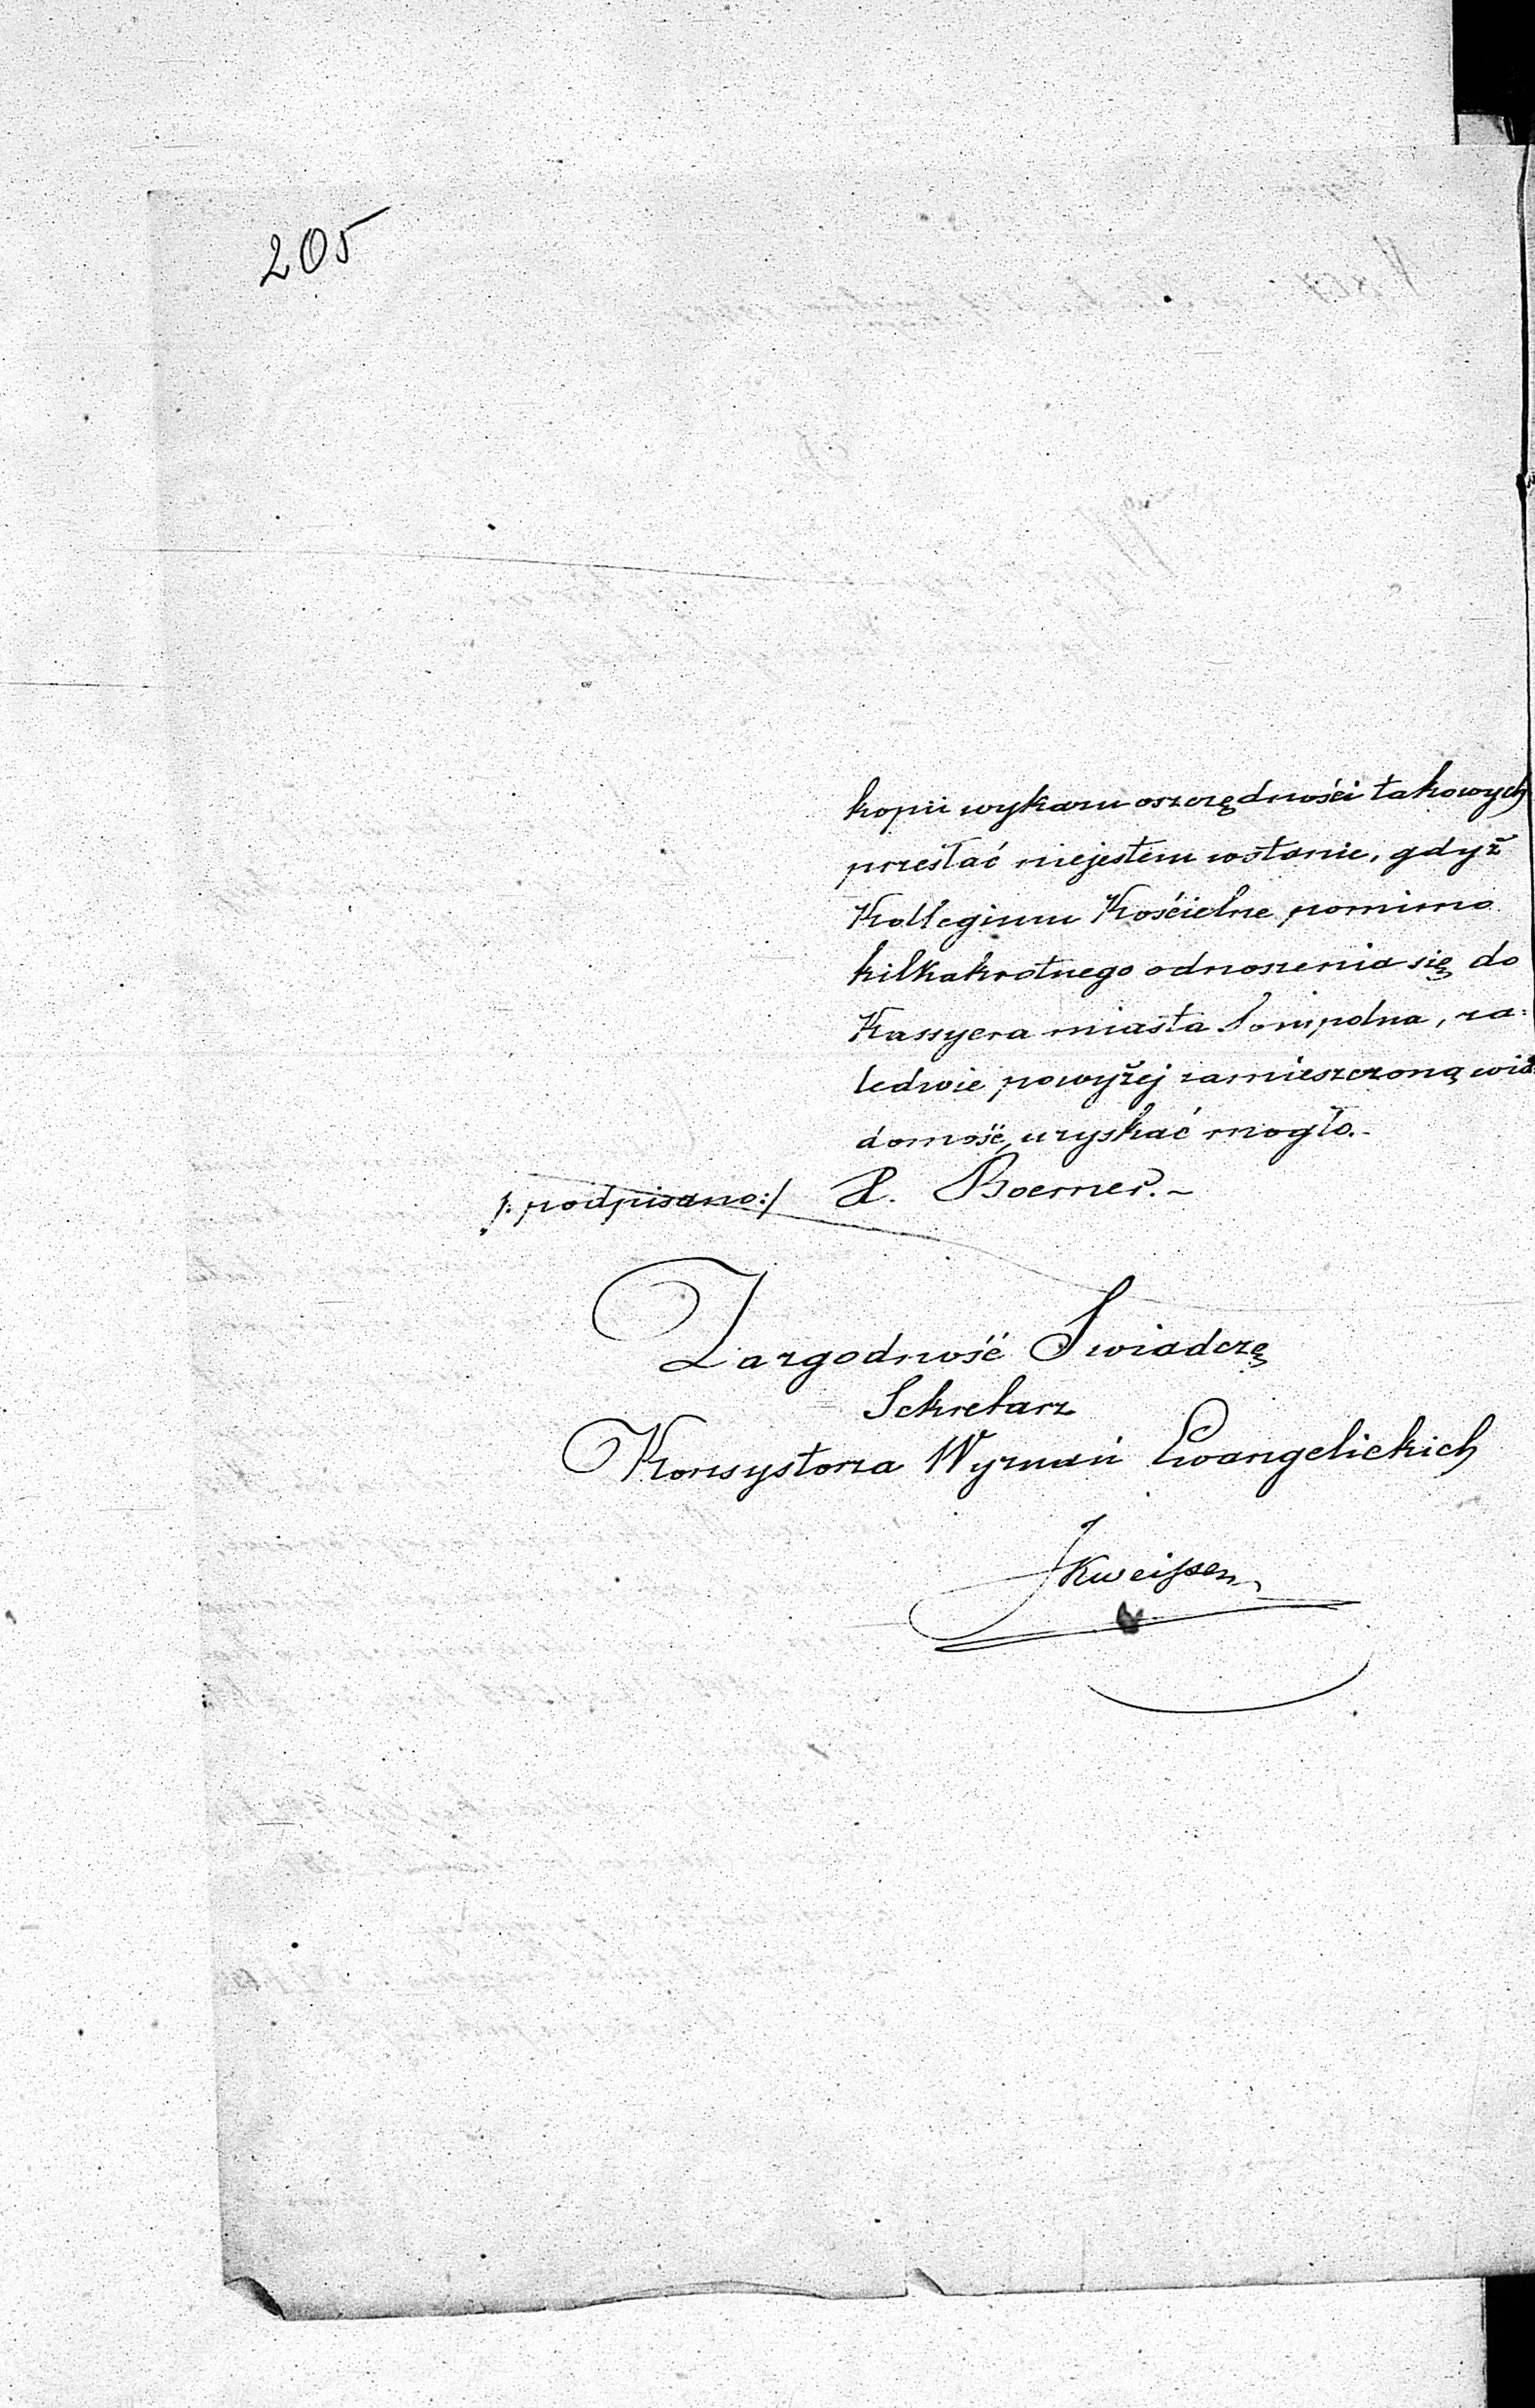 205
kopii wykazu oszczędności takowych
przesłać niejestem wstanie, gdyż
Kollegium Kościelne pomimo
kilkakrotnego odnoszenia się do
Kassyera miasta Sompolna, za=
ledwie powyżej zamieszczoną wia=
domość uzyskać mogło.-
/: podpisano:/ H. Boerner.-
Zazgodność Swiadczę
Sekretarz
Konsystorza Wyznań Ewangelickich